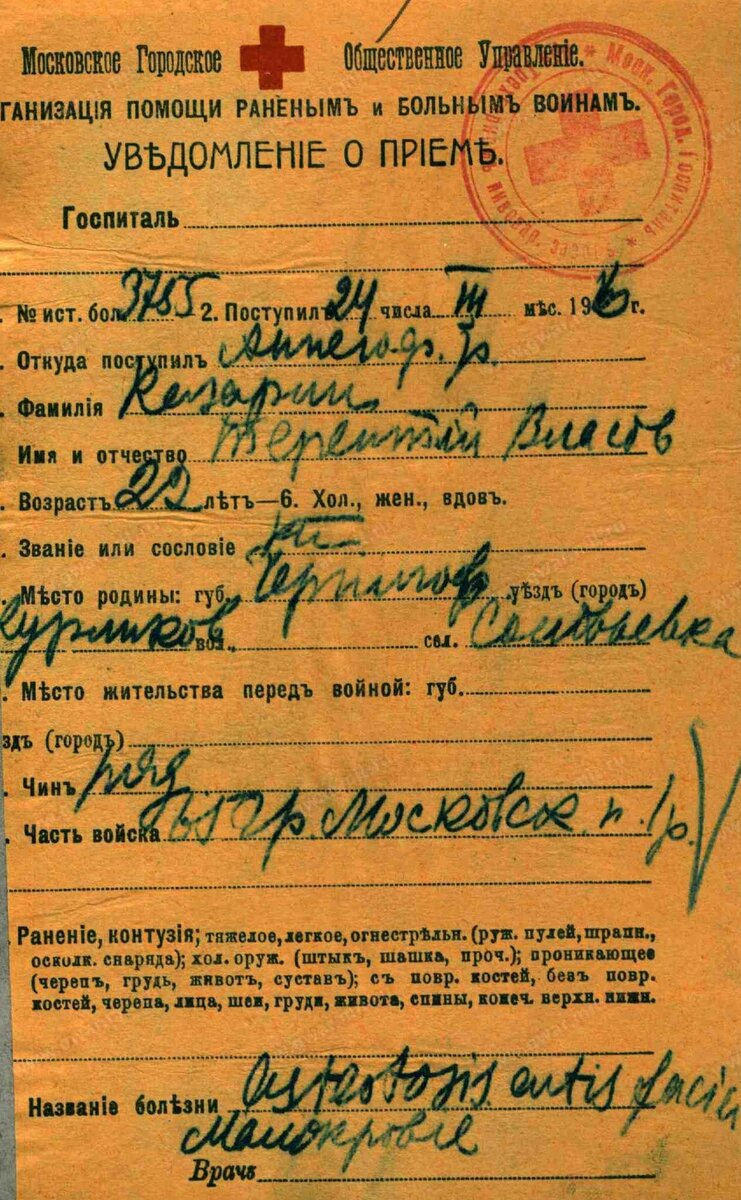 Московское Городское Общественное Управленіе.
ГАНИЗАЦІЯ ПОМОЩИ РАНЕНЫМЪ и БОЛЬНЫМЪ ВОИНАМЪ.
УВѢДОМЛЕНІЕ О ПРІЕМѢ.
Моск. Город. Госпиталь
Госпиталь
. № ист. бол 3755 2. Поступилъ 24 числа III мѣс. 1916 г.
. Откуда поступилъ
. Фамилія Казарин
. Имя и отчество Терентій Власов
. Возрастъ 22 лѣтъ—6. Хол., жен., вдов.
. Званіе или сословіе кр.
. Мѣсто родины: губ. Чернигов уѣздъ (городъ)
вол., сел. Софиевка
. Мѣсто жительства передъ войной: губ.
здъ (городъ)
. Чинъ ряд
. Часть войска гр. Московск. п. 1 р.
. Раненіе, контузія; тяжелое, легкое, огнестрѣльн. (руж. пулей, шрапн.,
осколк. снаряда); хол. оруж. (штыкъ, шашка, проч.); проникающее
(черепъ, грудь, животъ, суставъ); съ повр. костей, безъ повр.
костей, черепа, лица, шеи, груди, живота, спины, конеч. верхн. нижн.
Названіе болѣзни cutis faciei
Малокровіе
Врачъ